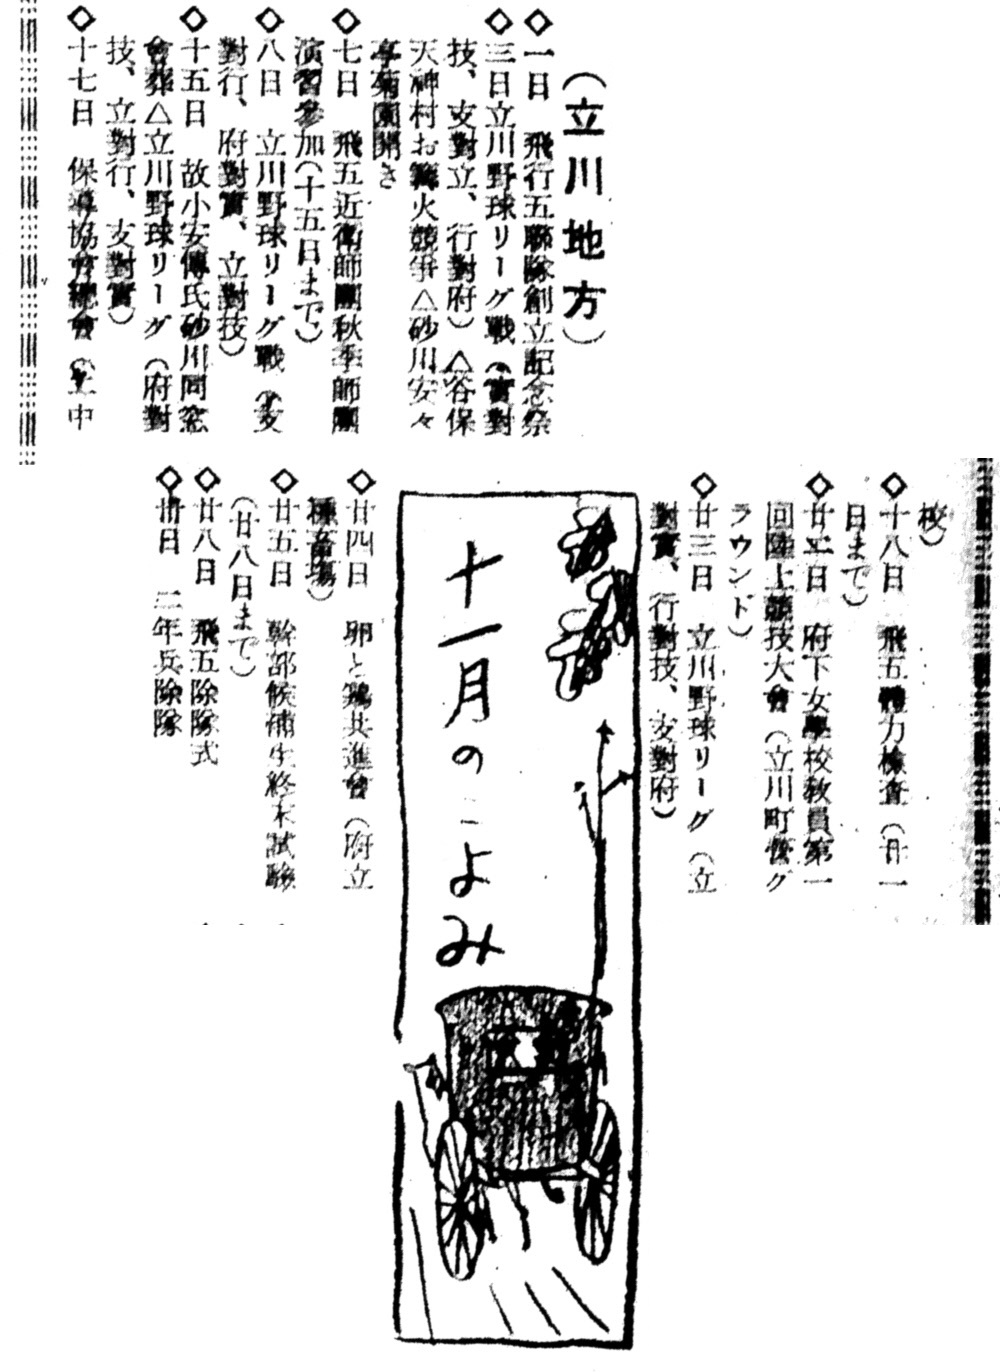 （立川地方）
◇一日　飛行五聯隊創立記念祭
◇三日立川野球リーグ戰（實對
技、支對立、行對府）△谷保
天神村お篝火競爭△砂川安々
亭菊園開き
◇七日　飛五近衛師團秋季師團
演習參加（十五日まで）
◇八日　立川野球リーグ戰（支
對行、府對實、立對技）
◇十五日　故小安傳氏砂川同窓
會葬△立川野球リーグ（府對
技、立對行、支對實）
◇十七日　保導協會總會（立中
校）
◇十八日　飛五體力檢査（廿一
日まで）
◇廿二日　府下女學校敎員第一
回陸上競技大會（立川町營グ
ラウンド）
◇廿三日　立川野球リーグ（立
對實、行對技、支對府）
十一月のこよみ
◇廿四日　卵と鷄共進會（府立
種畜場）
◇廿五日　幹部候補生終末試驗
（廿八日まで）
◇廿八日　飛五除隊式
◇卅日　二年兵除隊